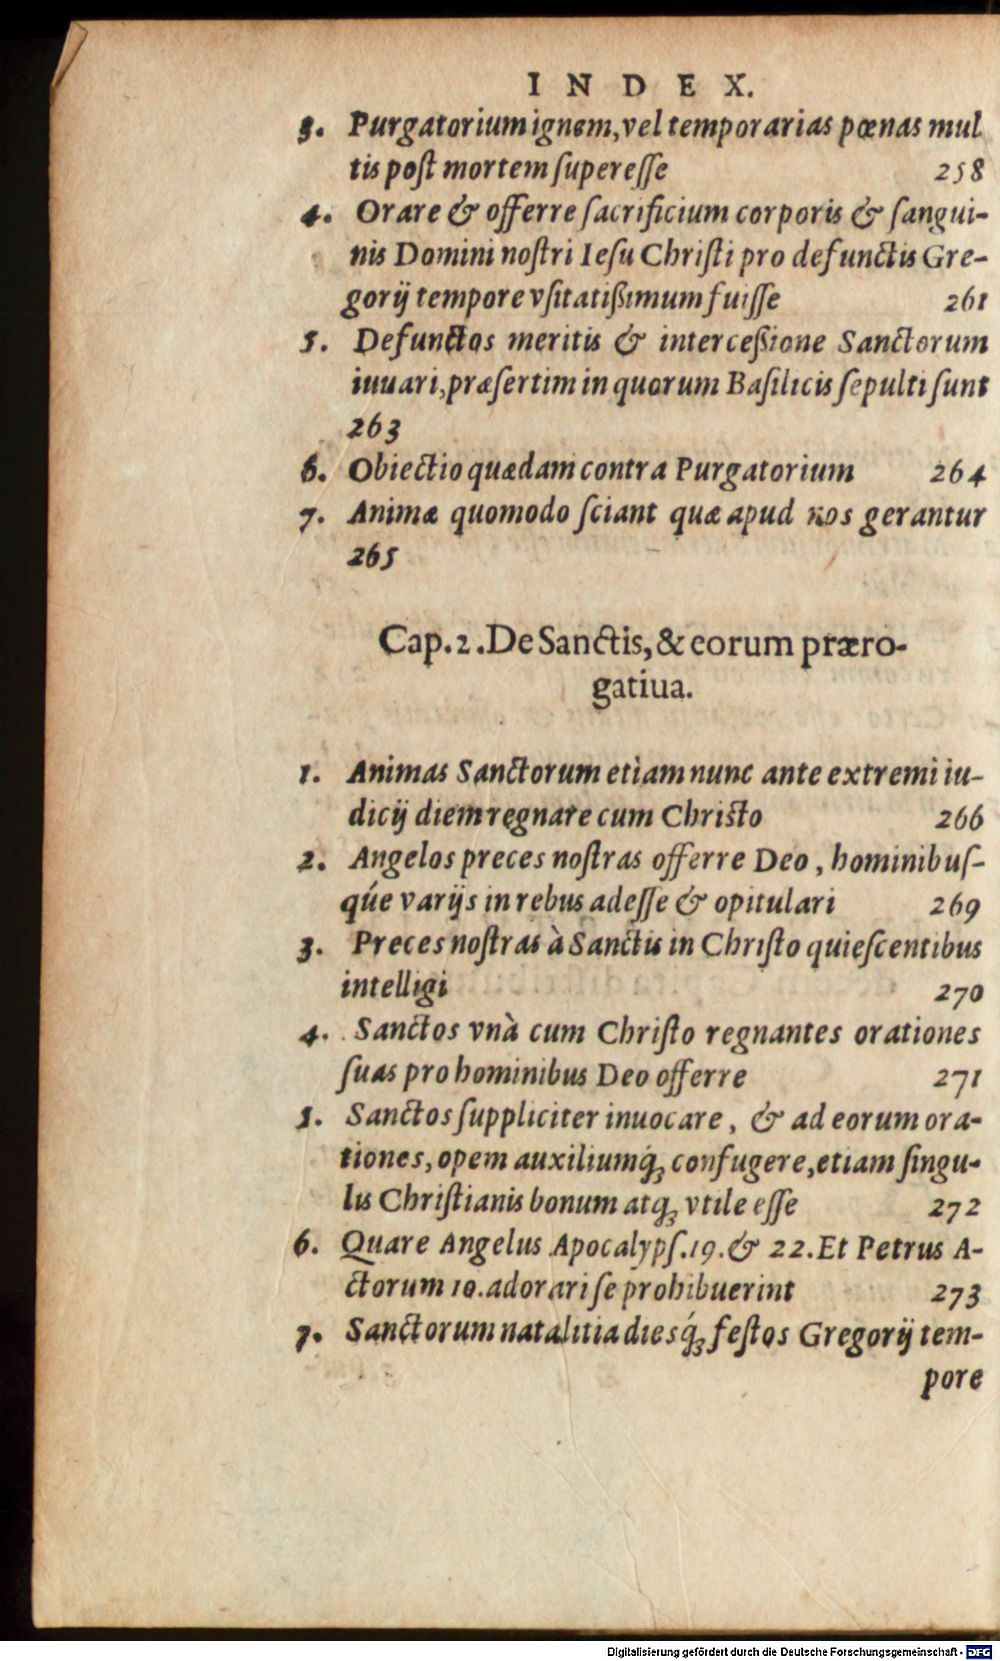 INDEX.
3. Purgatorium ignem, vel temporarias pœnas mul
tis poſt mortem ſupereſſe 258
4. Orare & offerre ſacrificium corporis & ſangui-
nis Domini noſtri Ieſu Chriſti pro defunctis Gre-
gorij tempore vſitatißimum fuiſſe 261
5. Defunctos meritis & interceßione Sanctorum
iuuari, præſertim in quorum Baſilicis ſepulti ſunt
263
6. Obiectio quædam contra Purgatorium 264
7. Animæ quomodo ſciant quæ apud nos gerantur
265
Cap. 2. De Sanctis, & eorum præro-
gatiua.
1. Animas Sanctorum etiam nunc ante extremi iu-
dicij diem regnare cum Chriſto 266
2. Angelos preces noſtras offerre Deo, hominibuſ-
qúe varijs in rebus adeſſe & opitulari 269
3. Preces noſtras à Sanctis in Chriſto quieſcentibus
intelligi 270
4. Sanctos vnà cum Chriſto regnantes orationes
ſuas pro hominibus Deo offerre 271
5. Sanctos ſuppliciter inuocare, & ad eorum ora-
tiones, opem auxiliumq́ꝫ confugere, etiam ſingu-
lis Chriſtianis bonum atqꝫ vtile eſſe 272
6. Quare Angelus Apocalypſ. 19. & 22. Et Petrus A-
ctorum 10. adorari ſe prohibuerint 273
7. Sanctorum natalitia diesq́ꝫ feſtos Gregorij tem-
pore
Digitalisierung gefördert durch die Deutsche Forschungsgemeinschaft - DFG